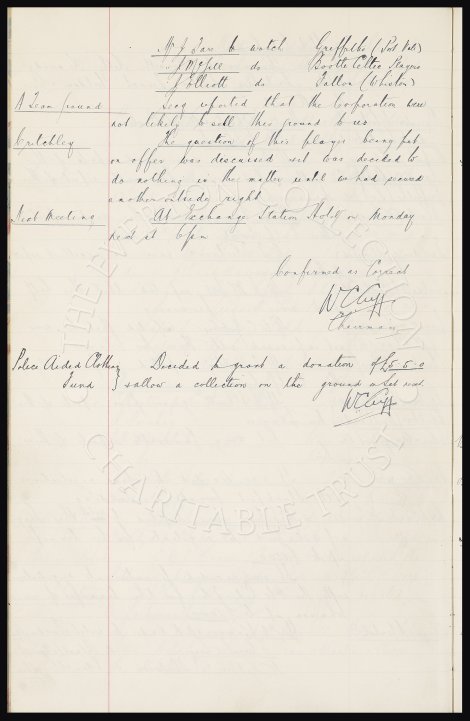 Mr J Tarr to watch Griffiths (Port Vale)
" A McGill do Bootle Celtic Players
" J Elliott do Tallon (Whiston)
A Team ground Secy reported that the Corporation were
not likely to sell this ground to us
Critchley The question of this player being put
on offer was discussed but was decided to
do nothing in the matter until we had secured
another outside right
Next Meeting At Exchange Station Hotel on Monday
next at 6pm
Confirmed as Correct
W C Cuff
Chairman
Police Aided Clothing Decided to grant a donation of £5-5-0
Fund } & allow a collection on the ground on Sat next.
W C Cuff
THE EVERTON COLLECTION
CHARITABLE TRUST